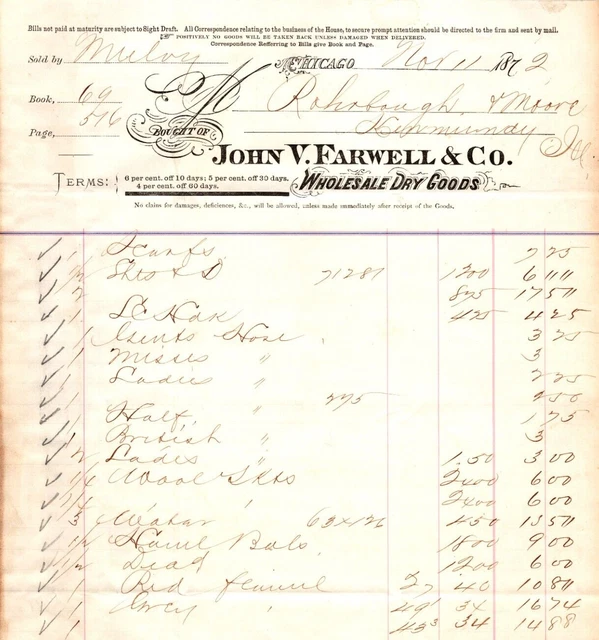 Bills not paid at maturity are subject to Sight Draft. All Correspondence relating to the business of the House, to secure prompt attention should be directed to the firm and sent by mail.
POSITIVELY NO GOODS WILL BE TAKEN BACK UNLESS DAMAGED WHEN DELIVERED.
Correspondence Refferring to Bills give Book and Page.
Sold by CHICAGO Nov 11 1872
Book, 69 M Rohrbough & Moore
Page, 516 Kinmundy Ill
BOUGHT OF
JOHN V. FARWELL & CO.
TERMS: 6 per cent. off 10 days; 5 per cent. off 30 days.
4 per cent. off 60 days.
WHOLESALE DRY GOODS
No claims for damages, deficiences, &c., will be allowed, unless made immediately after receipt of the Goods.
1 Scarfs 2 25
1/2 Shts & D 71281 1200 6 "
2 875 17 5"
1 425 4 25
1 Gents Hose 3 25
1 Misses " 3
1 Ladies " 2 25
1 275 2 50
1 Half " 1 75
1 British " 3
2 Ladies " 1.50 3 00
1/4 Wool Skts 2400 6 00
1/4 " " 2400 6 00
3 63x126 450 13 5"
1/2 1800 9 00
1/2 1200 6 00
1 Red flannel 27 40 10 8"
1 Grey " 49 1 34 16 74
1 43 3 34 14 88